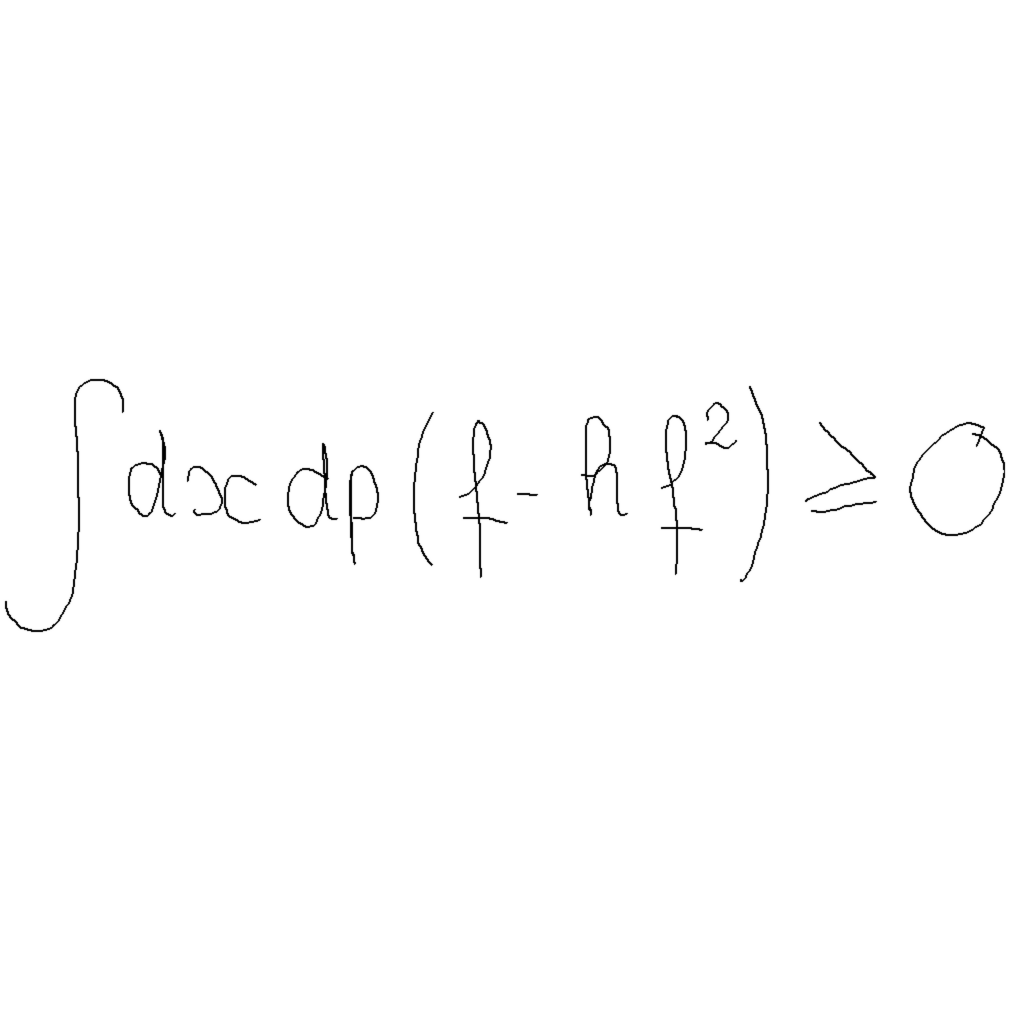 ∫dxdp(f - hf²) ≥ 0